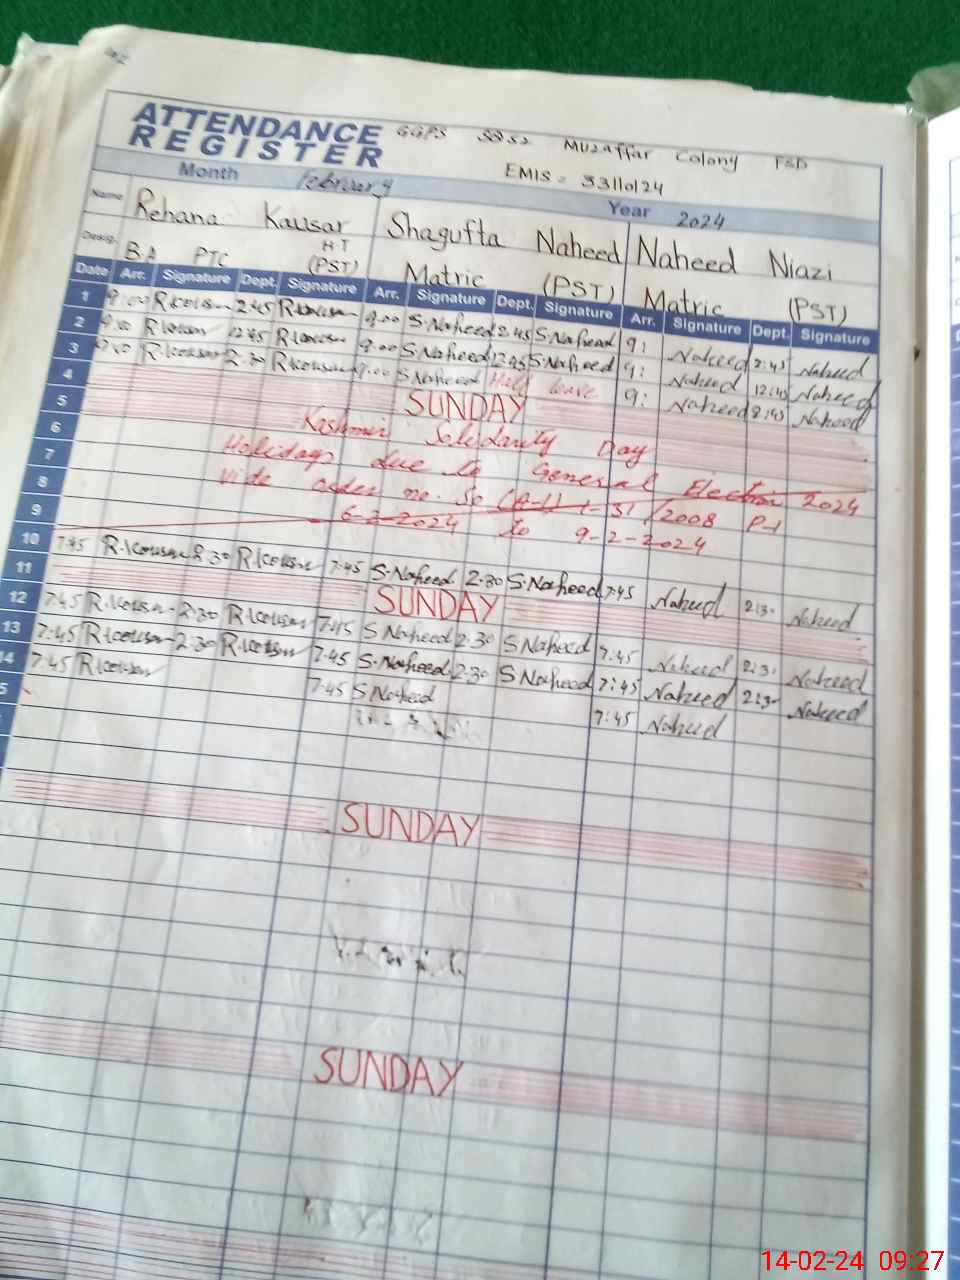 ATTENDANCE
REGISTER
GGPS Muzaffar Colony FSD
EMIS = 33110124
Month February Year 2024
Name Rehana Kausar Shagufta Naheed Naheed Niazi
Desig. B.A PTC H.T (PST) Matric (PST) Matric (PST)
Date Arr. Signature Dept. Signature Arr. Signature Dept. Signature Arr. Signature Dept. Signature
1 9:00 R.Kousar 2.45 R.Kousar 9.00 S.Naheed 2.45 S.Naheed 9: Naheed 2:45 Naheed
2 9:00 R.Kousar 12.45 R.Kousar 9.00 S.Naheed 12.45 S.Naheed 9: Naheed 12:45 Naheed
3 R.Kousar 2.30 R.Kousar 9:00 S.Naheed Half leave 9: Naheed 2:45 Naheed
4 SUNDAY
5 Kashmir Solidarity Day
6 Holidays due to General Election 2024
7 vide order no. So (A-1) 1-31/2008 P-1
8 6-2-2024 to 9-2-2024
9
10 7:45 R.Kousar 2:30 R.Kousar 7:45 S.Naheed 2.30 S.Naheed 7:45 Naheed 2:30 Naheed
11 SUNDAY
12 7:45 R.Kousar 2:30 R.Kousar 7:45 S Naheed 2:30 S Naheed 7:45 Naheed 2:30 Naheed
13 7:45 R.Kousar 2:30 R.Kousar 7:45 S.Naheed 2:30 S Naheed 7:45 Naheed 2:30 Naheed
14 7:45 R.Kousar 7:45 S Naheed 7:45 Naheed
SUNDAY
SUNDAY
14-02-24 09:27